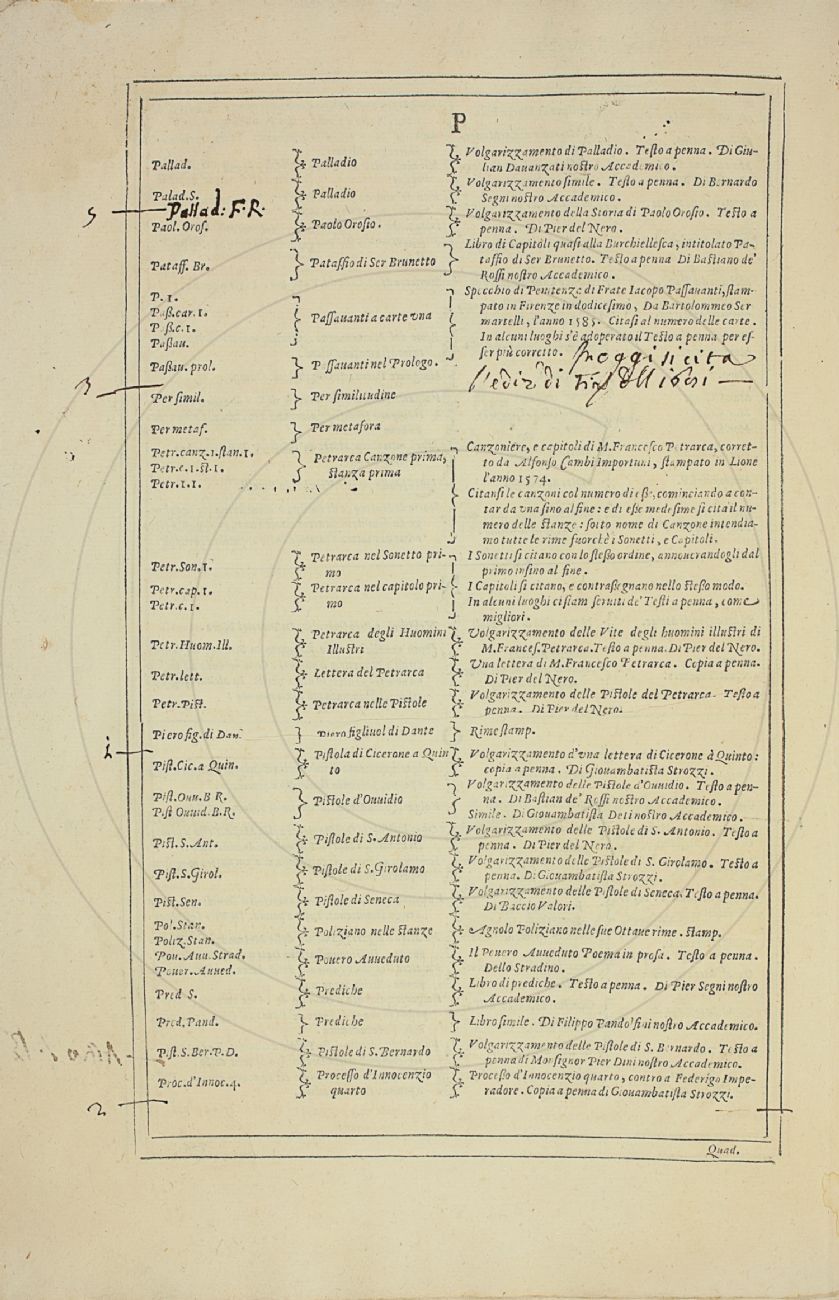 P
Pallad. Palladio Volgarizzamento di Palladio. Testo a penna. Di Giu-
lian Dauanzati nostro Accademico.
Palad. S. Palladio Volgarizzamento simile. Testo a penna. Di Bernardo
Segni nostro Accademico.
5 Pallad: F. R.
Paol. Oros. Paolo Orosio. Volgarizzamento della Storia di Paolo Orosio. Testo a
penna. Di Pier del Nero.
Pataff. Br. Pataffio di Ser Brunetto Libro di Capitoli quasi alla Burchiellesca, intitolato Pa-
taffio di Ser Brunetto. Testo a penna Di Bastiano de'
Rossi nostro Accademico.
P. 1. Passauanti a carte vna Specchio di Penitenza di Frate Iacopo Passauanti, stam-
Pass. car. 1. pato in Firenze in dodicesimo, Da Bartolommeo Ser
Pass. c. 1. martelli, l'anno 1585. Citasi al numero delle carte.
Passau. In alcuni luoghi s'è adoperato il Testo a penna per es-
ser più corretto.
Passau. prol. Passauanti nel Prologo.
oggi si cita
l'ediz. di
3
Per simil. Per similitudine
Per metaf. Per metafora
Petr. canz. 1. stan. 1. Petrarca Canzone prima, Canzoniere, e capitoli di M. Francesco Petrarca, corret-
Petr. c. 1. st. 1. stanza prima to da Alfonso Cambi Importuni, stampato in Lione
Petr. 1. 1. l'anno 1574.
Citansi le canzoni col numero di esse, cominciando a con-
tar da vna sino al fine: e di esse medesime si cita il nu-
mero delle stanze: sotto nome di Canzone intendia-
mo tutte le rime fuorchè i Sonetti, e Capitoli.
Petr. Son. 1. Petrarca nel Sonetto pri- I Sonetti si citano con lo stesso ordine, annouerandogli dal
mo primo insino al fine.
Petr. cap. 1. Petrarca nel capitolo pri- I Capitoli si citano, e contrassegnano nello stesso modo.
Petr. c. 1. mo In alcuni luoghi ci siam seruiti de' Testi a penna, come
migliori.
Petr. Huom. Ill. Petrarca degli Huomini Volgarizzamento delle Vite degli huomini illustri di
Illustri M. Frances. Petrarca. Testo a penna. Di Pier del Nero.
Petr. lett. Lettera del Petrarca Vna lettera di M. Francesco Petrarca. Copia a penna.
Di Pier del Nero.
Petr. Pist. Petrarca nelle Pistole Volgarizzamento delle Pistole del Petrarca. Testo a
penna. Di Pier del Nero.
Piero fig. di Dan. Piero figliuol di Dante Rime stamp.
1
Pist. Cic. a Quin. Pistola di Cicerone a Quin Volgarizzamento d'vna lettera di Cicerone à Quinto:
to copia a penna. Di Giouambatista Strozzi.
Pist. Ouu. B R. Pistole d'Ouuidio Volgarizzamento delle Pistole d'Ouuidio. Testo a pen-
na. Di Bastian de' Rossi nostro Accademico.
Pist Ouuid. B. R. Simile. Di Giouambatista Deti nostro Accademico.
Pist. S. Ant. Pistole di S. Antonio Volgarizzamento delle Pistole di S. Antonio. Testo a
penna. Di Pier del Nero.
Pist. S. Girol. Pistole di S. Girolamo Volgarizzamento delle Pistole di S. Girolamo. Testo a
penna. Di Giouambatista Strozzi.
Pist. Sen. Pistole di Seneca Volgarizzamento delle Pistole di Seneca. Testo a penna.
Di Baccio Valori.
Pol. Stan. Poliziano nelle stanze Agnolo Poliziano nelle sue Ottaue rime. stamp.
Poliz. Stan.
Pou. Auu. Strad. Pouero Auueduto Il Pouero Auueduto Poema in prosa. Testo a penna.
Pouer. Auued. Dello Stradino.
Pred S. Prediche Libro di prediche. Testo a penna. Di Pier Segni nostro
Accademico.
Pred. Pand. Prediche Libro simile. Di Filippo Pandolfini nostro Accademico.
Pist. S. Ber. P. D. Pistole di S. Bernardo Volgarizzamento delle Pistole di S. Bernardo. Testo a
penna di Monsignor Pier Dini nostro Accademico.
Proc. d'Innoc. 4. Processo d'Innocenzio Processo d'Innocenzio quarto, contro a Federigo Impe-
quarto radore. Copia a penna di Giouambatista Strozzi.
2
Quad.